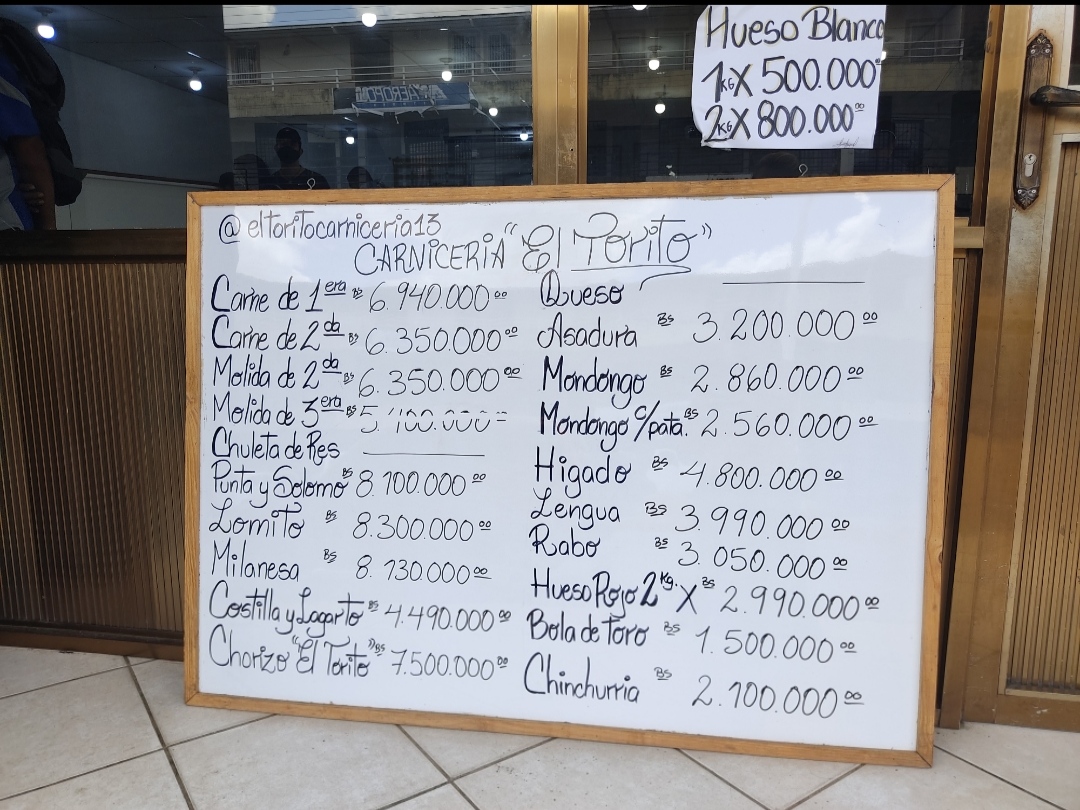 Hueso Blanco
1KG X 500.000⁰⁰
2KG X 800.000⁰⁰
@eltoritocarniceria13
CARNICERIA "El Torito"
Carne de 1era Bs 6.940.000⁰⁰
Carne de 2da Bs 6.350.000⁰⁰
Molida de 2da Bs 6.350.000⁰⁰
Molida de 3era Bs
Chuleta de Res
Punta y Solomo Bs 8.100.000⁰⁰
Lomito Bs 8.300.000⁰⁰
Milanesa Bs 8.130.000⁰⁰
Costilla y Lagarto Bs 4.490.000⁰⁰
Chorizo "El Torito" Bs 7.500.000⁰⁰
Queso
Asadura Bs 3.200.000⁰⁰
Mondongo Bs 2.860.000⁰⁰
Mondongo c/pata. Bs 2.560.000⁰⁰
Higado Bs 4.800.000⁰⁰
Lengua Bs 3.990.000⁰⁰
Rabo Bs 3.050.000⁰⁰
Hueso Rojo 2Kg. X Bs 2.990.000⁰⁰
Bola de Toro Bs 1.500.000⁰⁰
Chinchurria Bs 2.100.000⁰⁰